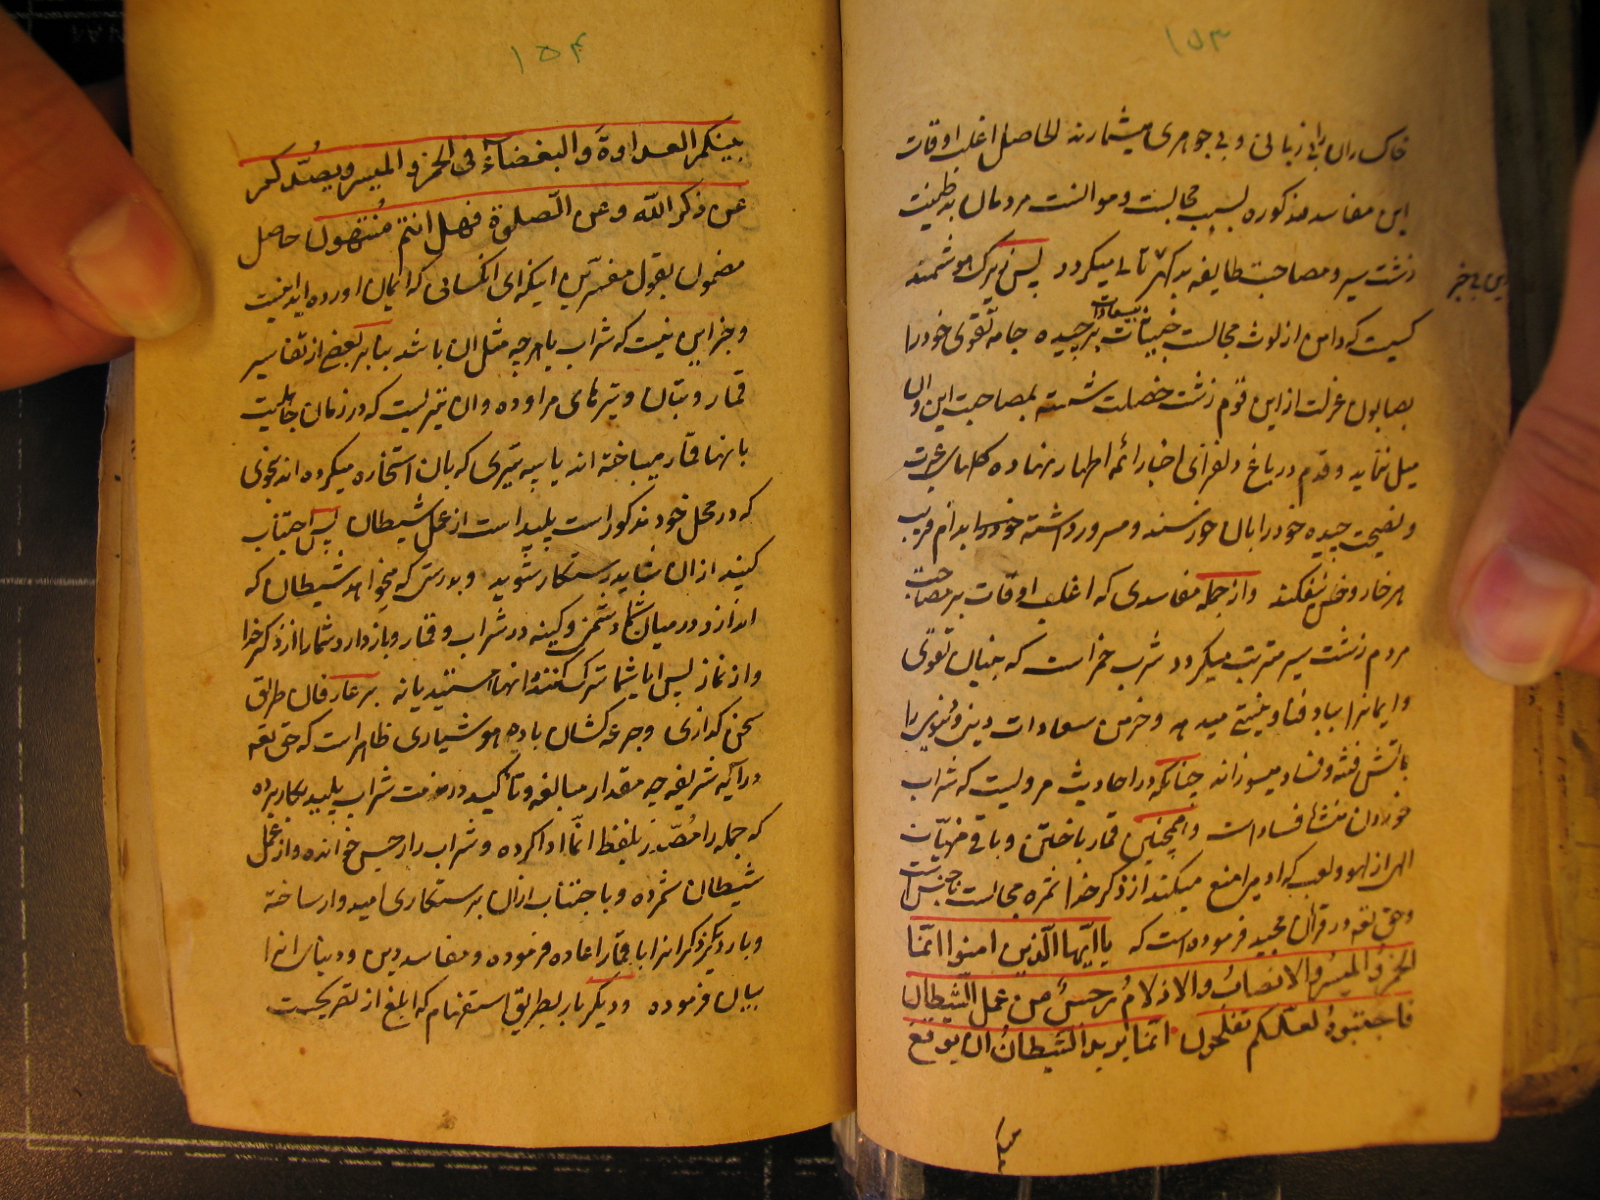 ۱۵۳
خاکساران را بی زبانی و بی جوهری میشمارند الحاصل اغلب اوقات
این مفاسد مذکوره بسبب مجالست و موانست مردمان بد طینت
زشت سیر و مصاحبت طایفه بد میگردد پس زیرک هوشمند
کیست که دامن از لوث مجالست خبیثات بر چیده جامه تقوی خود را
بصابون عزلت ازین قوم زشت خصلت شسته بمصاحبت این وان
میل ننماید و قدم در باغ دلفزای اخبار ائمه اطهار نهاده کلهای عبرت
و نصیحت چیده خود را بان خورسند و مسرور داشته خود را بدام فریب
هر خار و خس نیفکند و از جمله مفاسدی که اغلب اوقات بر مصاحبت
مردم زشت سیر مترتب میکردد شرب خمر است که بنیان تقوی
و ایمانرا بباد فنا و نیستی میدهد و خرمن سعادات دینی و دنیوی را
باتش فتنه و فساد میسوزاند چنانکه در احادیث مرویست که شراب
خوردن منشا فساد است و همچنین قمار باختن و باقی منهیات
الهی از لهو و لعب که ادمی را منع میکند از ذکر خدا ثمره مجالست ناجنس است
و حق تعه در قران مجید فرموده است که یا ایها الذین امنوا انما
الخمر و المیسر و الانصاب و الازلام رجس من عمل الشیطان
فاجتنبوه لعلکم تفلحون انما یرید الشیطان ان یوقع
۱۵۴
بینکم العداوة و البغضاء فی الخمر و المیسر و یصدکم
عن ذکر الله و عن الصلوة فهل انتم منتهون حاصل
مضمون بقول مفسرین اینکه ای انکسانی که ایمان اورده اید اینست
و جز این نیست که شراب یا هر چه مثل ان باشد بنا بر بعضی از تفاسیر
قمار و بتان و تیرهای مراوده وان تیریست که در زمان جاهلیت
بانها قمار میباخته اند یا سه تیری که بان استخاره میکرده اند بنحوی
که در محل خود مذکور است پلید است از عمل شیطان پس اجتناب
کنید از ان شاید رستکار شوید و بدرستی که میخواهد شیطان که
اندازد در میان شما دشمنی و کینه در شراب و قمار و باز دارد شما را از ذکر خدا
و از نماز پس ایا شما ترک کننده انها هستید یا نه بر عارفان طریق
سخن کذاری و جرعه کشان باده هوشیاری ظاهر است که حق تعه
در آیه شریفه چه مقدار مبالغه و تأکید در مذمت شراب پلید بکار برده
که جمله را مصدر بلفظ انما ادا کرده و شراب را رجس خوانده و از عمل
شیطان شمرده و باجتناب ازان برستکاری امیدوار ساخته
و بار دیکر ذکر انرا با قمار اعاده فرموده و مفاسد دین و دنیای انرا
بیان فرموده و دیکر بار بطریق استفهام که ابلغ از تصریحست